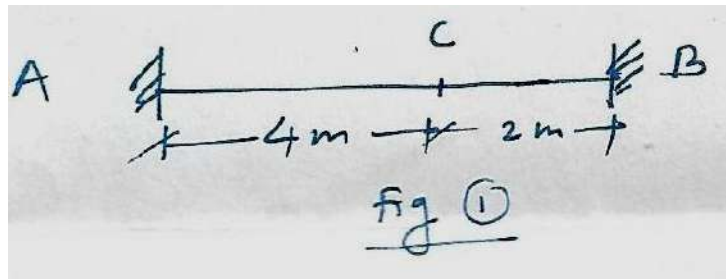 C
A B
4m 2m
Fig ①